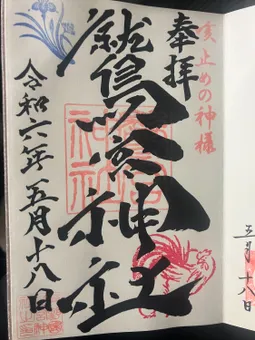 奉拝
咳止めの神様
鷲宮神社
令和六年五月十八日
五月十八日